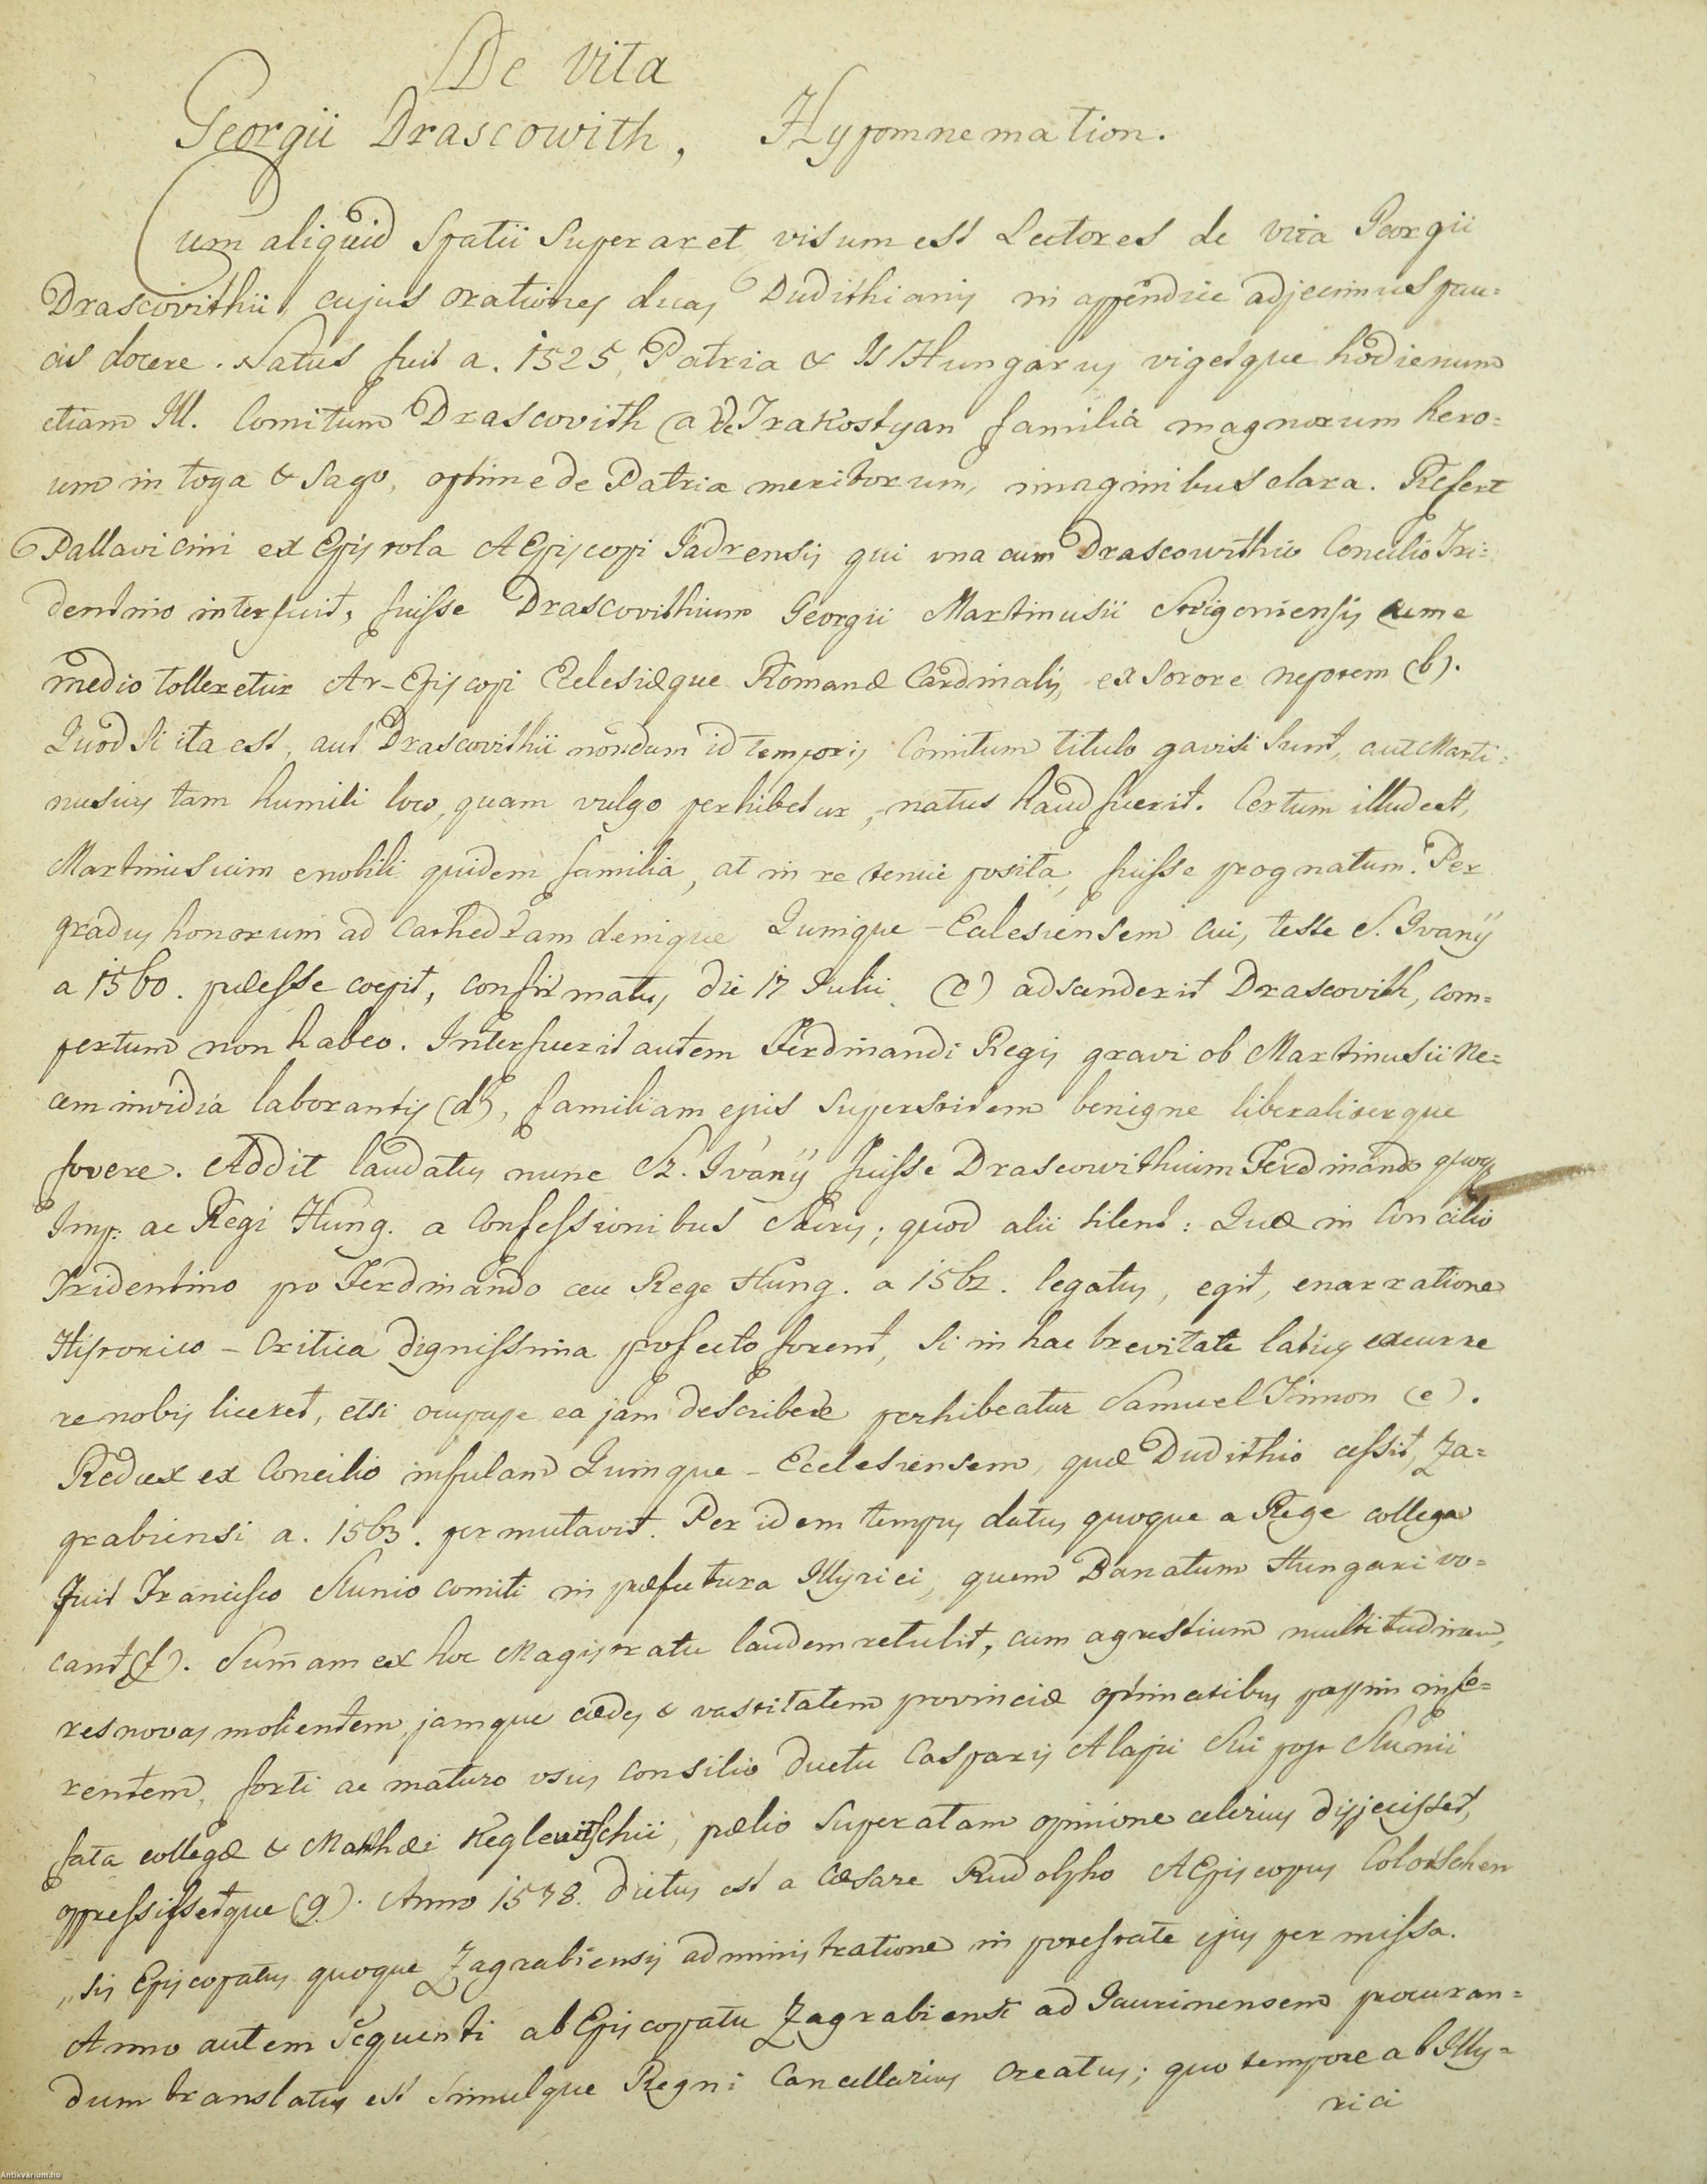 De Vita
Georgii Drascowith, Hypomnemation.
Cum aliquid Spatii Superaret visum est Lectores de vita Georgii
Drascovithii, cujus orationes duas Dudithianis in appendice adjecimus pau=
cis docere. Natus fuit a. 1525, Patria & Is Hungarus vigetque hodienum
etiam Ill. Comitum Drascovith (a) de Trakostyan familia magnorum hero=
um in toga & Sago, optime de Patria meritorum, imaginibus clara. Refert
Pallavicini ex Epistola AEpiscopi Jadrensis qui una cum Drascowithio Concilio Tri=
dentino interfuit, fuisse Drascovithium Georgii Martinusii Strigoniensis cum e
medio tolleretur Ar-Episcopi Eclesiæque Romanæ Cardinalis, ex Sorore nepotem (b).
Quod Si ita est, aut Drascovithii nondum id temporis Comitum titulo gavisi Sunt, aut Marti=
nusius tam humili loco, quam vulgo perhibetur, natus haud fuerit. Certum illud est,
Martinusium e nobili quidem familia, at in re tenui posita, fuisse prognatum. Per
gradus honorum ad Cathedram denique Quinque-Eclesiensem cui, teste S. Ivanÿ
a 1560. præesse coepit, confirmatus, die 17 Julii (c) adscenderit Drascovith, com=
pertum non habeo. Interfuerit autem Ferdinandi Regis gravi ob Martinusii Ne=
cem invidia laborantis (d), familiam ejus Superstitem benigne liberaliterque
fovere. Addit laudatus nunc Sz. Ivánÿ fuisse Drascowithium Ferdinando quoq
Imp. ac Regi Hung. a Confessionibus Sacris; quod alii silent: Quæ in Concilio
Tridentino pro Ferdinando ceu Rege Hung. a 1562. legatus, egit, enarratione
Historico-Critica dignissima profecto forent, Si in hac brevitate latius excurre
re nobis liceret, etsi occupasse ea jam describere perhibeatur Samuel Timon (e).
Redux ex Concilio insulam Quinque-Ecclesiensem, quæ Dudithio cessit, Za=
grabiensi a. 1563. permutavit. Per idem tempus datus quoque a Rege collega
fuit Francisco Slunio comiti in præfectura Illyrici, quem Banatum Hungari vo=
cant (f). Sum̄am ex hoc Magistratu laudem retulit, cum agrestium multitudinem,
res novas molientem, jamque cædes & vastitatem provinciæ optimatibus passim infe=
rentem, forti ac maturo usus consilio ductu Casparis Alapii Sui post Slunii
fata collegæ & Mathæi Keglevitschii, prælio Superatam opinione celerius disjecisset,
oppressissetque (g). Anno 1578. dictus est a Cæsare Rudolpho AEpiscopus Colotschen
„sis Episcopatus quoque Zagrabiensis administratione in potestate ejus permissa.
Anno autem Sequenti ab Episcopatu Zagrabiensi ad Jaurinensem procuran=
dum translatus est Simulque Regni Cancellarius creatus; quo tempore ab Illy=
rici